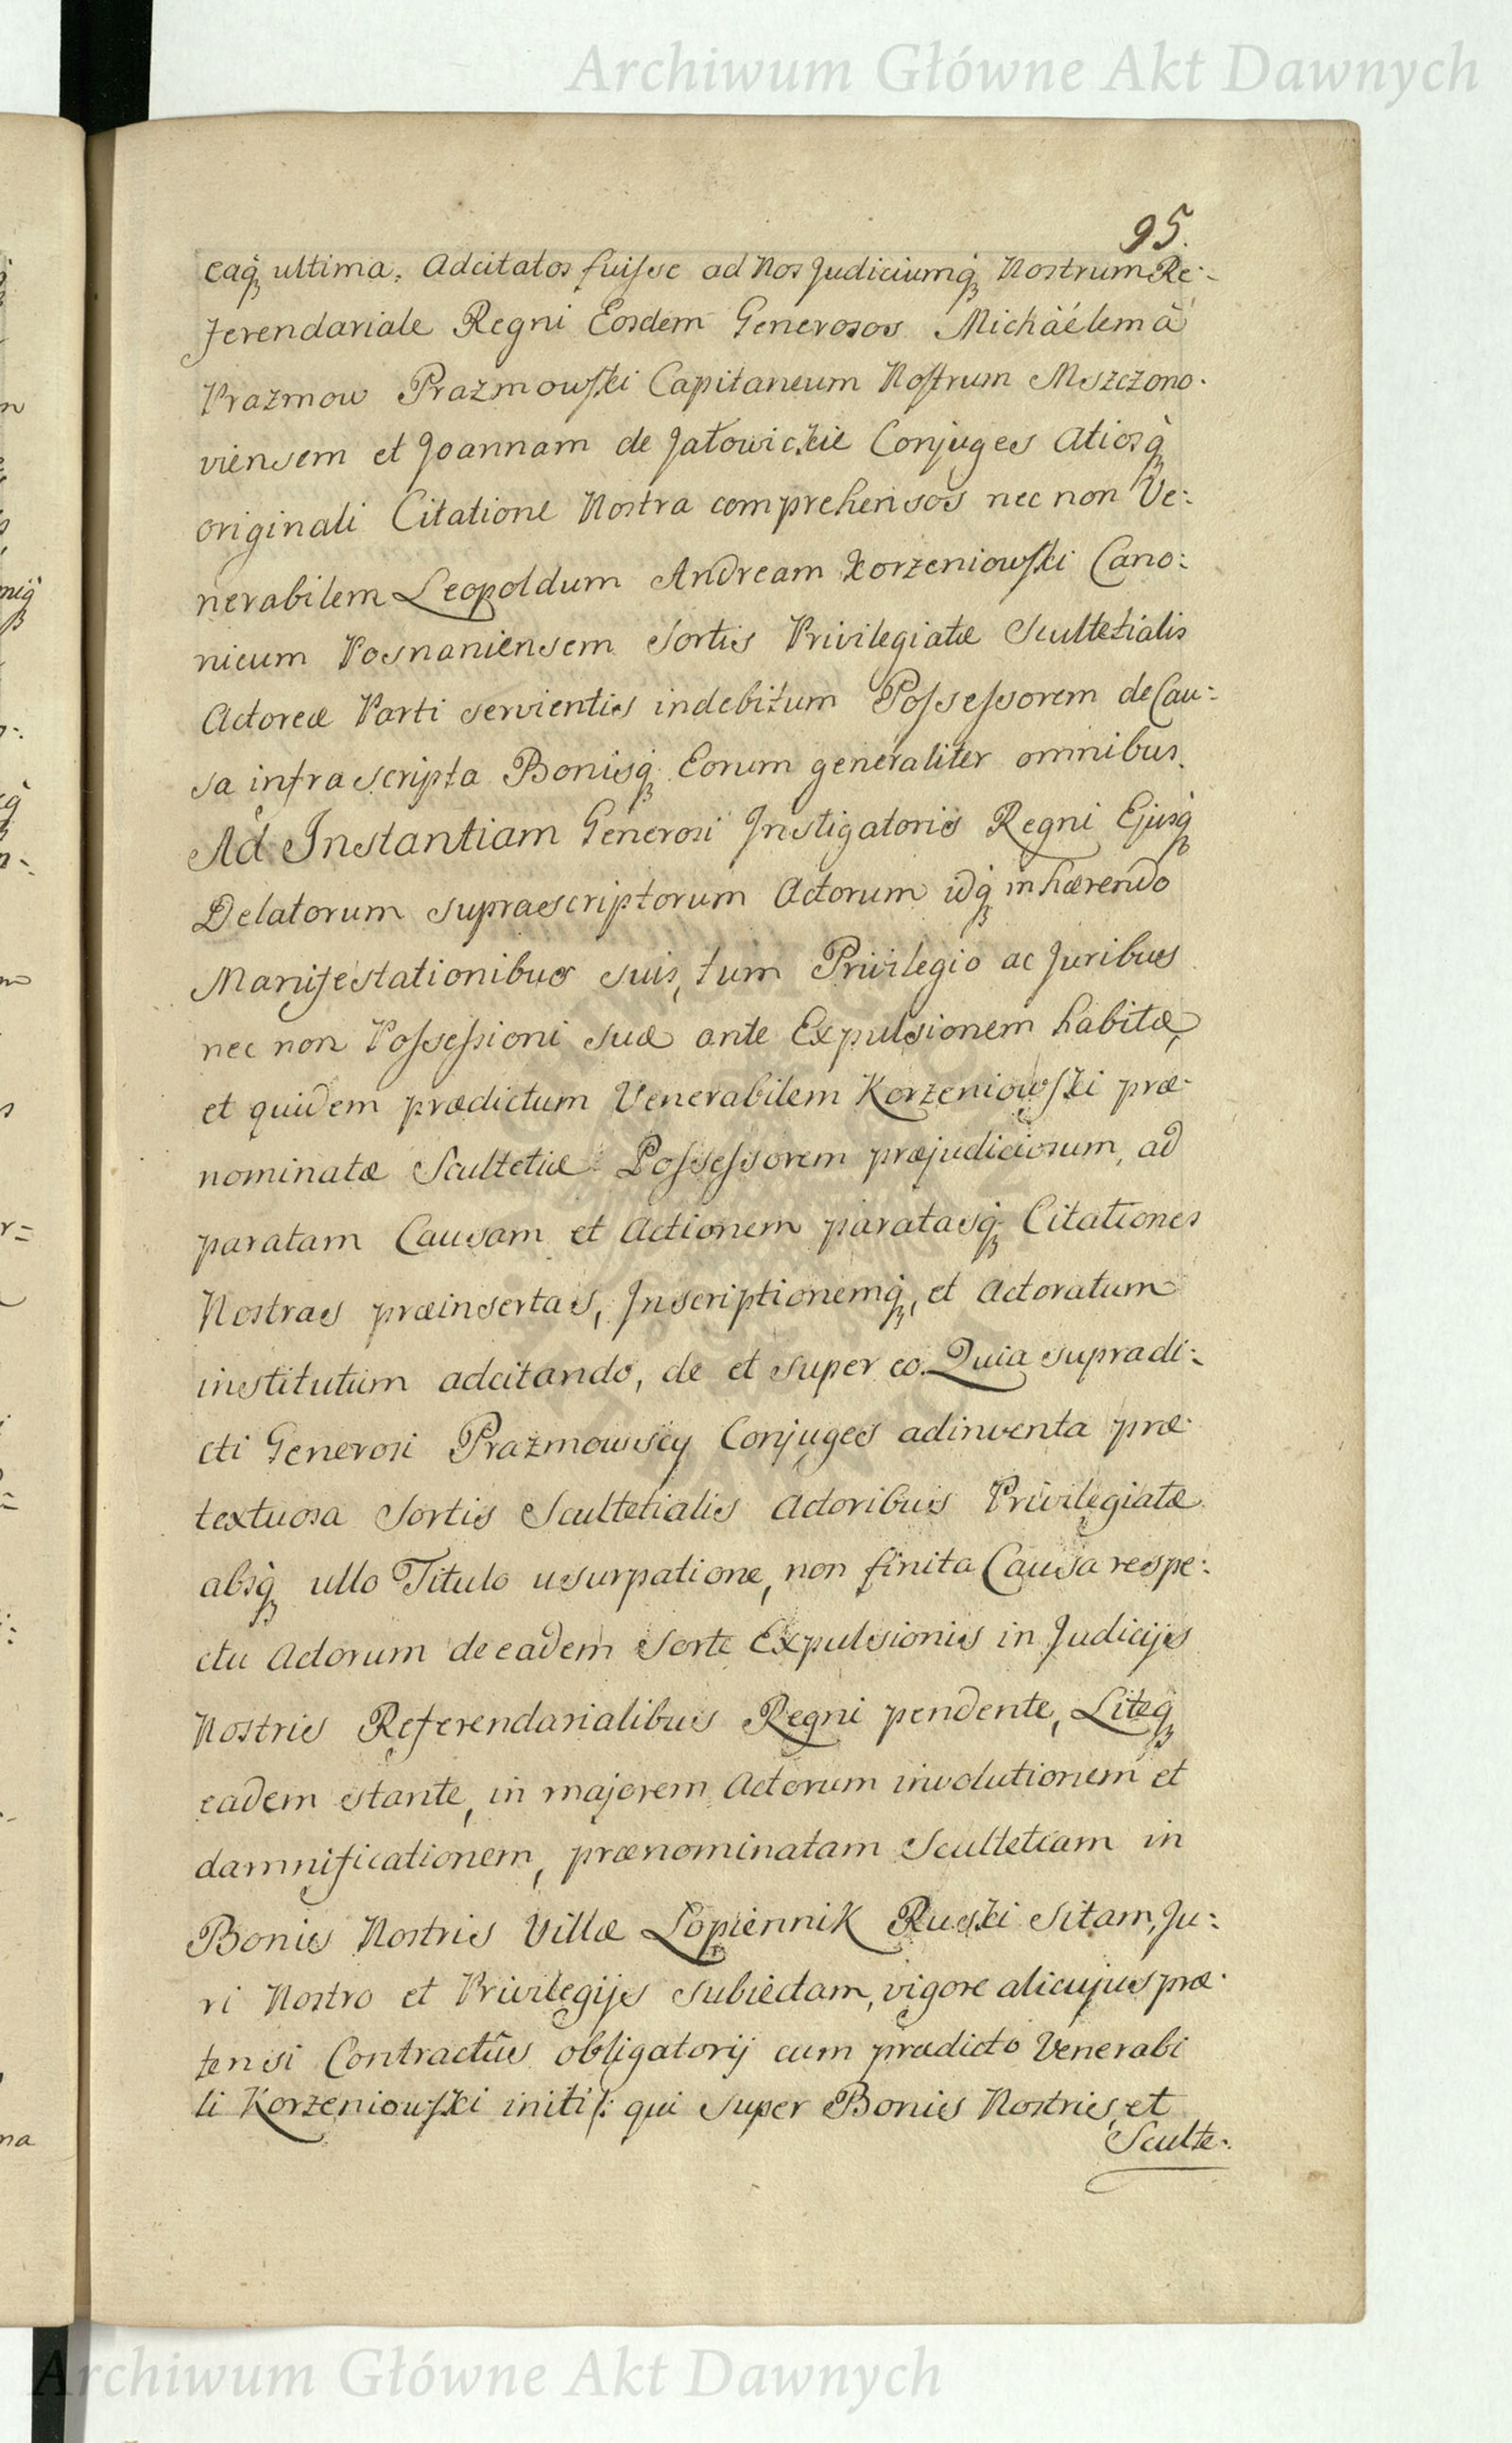 Archiwum Główne Akt Dawnych
95.
eaq́ȝ ultima. Adcitatos fuisse ad Nos Judiciumq́ȝ Nostrum Re:
ferendariale Regni Eosdem Generosos Michàélem à
Prazmow Prazmowski Capitaneum Nostrum Mszczono:
viensem et Joannam de Jałowickie Conjuges Aliosq́ȝ
originali Citatione Nostra comprehensos nec non Ve:
nerabilem Leopoldum Andream Korzeniowski Cano:
nicum Posnaniensem Sortis Privilegiatæ Scultetialis
Actoreæ Parti servientis indebitum Possessorem de Cau:
sa infra scripta Bonisq́ȝ Eorum generaliter omnibus.
Ad Instantiam Generosi Instigatoris Regni Ejusq́ȝ
Delatorum suprascriptorum Actorum idq́ȝ inhærendo
Manifestationibus suis, tum Privilegio ac Juribus
nec non Possessioni suæ ante Expulsionem habitæ,
et quidem prædictum Venerabilem Korzeniowski præ:
nominatæ Scultetiæ Possessorem præjudiciosum, ad
paratam Causam et Actionem paratasq́ȝ Citationes
Nostras præinsertas, Inscriptionemq́ȝ, et Actoratum
institutum adcitando, de et super eo. Quia supradi:
cti Generosi Prazmowscy Conjuges adinventa præ:
textuosa Sortis Scultetialis Actoribus Privilegiatæ
absq́ȝ ullo Titulo usurpatione, non finita Causa respe:
ctu Actorum de eadem Sorte Expulsionis in Judicijs
Nostris Referendarialibus Regni pendente, Liteq́ȝ
eadem stante, in majorem Actorum involutionem et
damnificationem, prænominatam Scultetiam in
Bonis Nostris Villæ Łopiennik Ruski Sitam, Ju:
ri Nostro et Privilegijs subiectam, vigore alicujus præ:
tensi Contractûs obligatorij cum prædicto Venerabi
li Korzeniowski initi /: qui super Bonis Nostris, et
Sculte:
Archiwum Główne Akt Dawnych